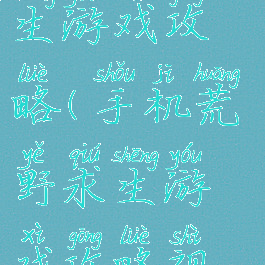 生游戏攻
lüè shǒu jī huāng
略(手机荒
yě qiú shēng yóu
野求生游
xì gōng lüè shì
戏攻略视